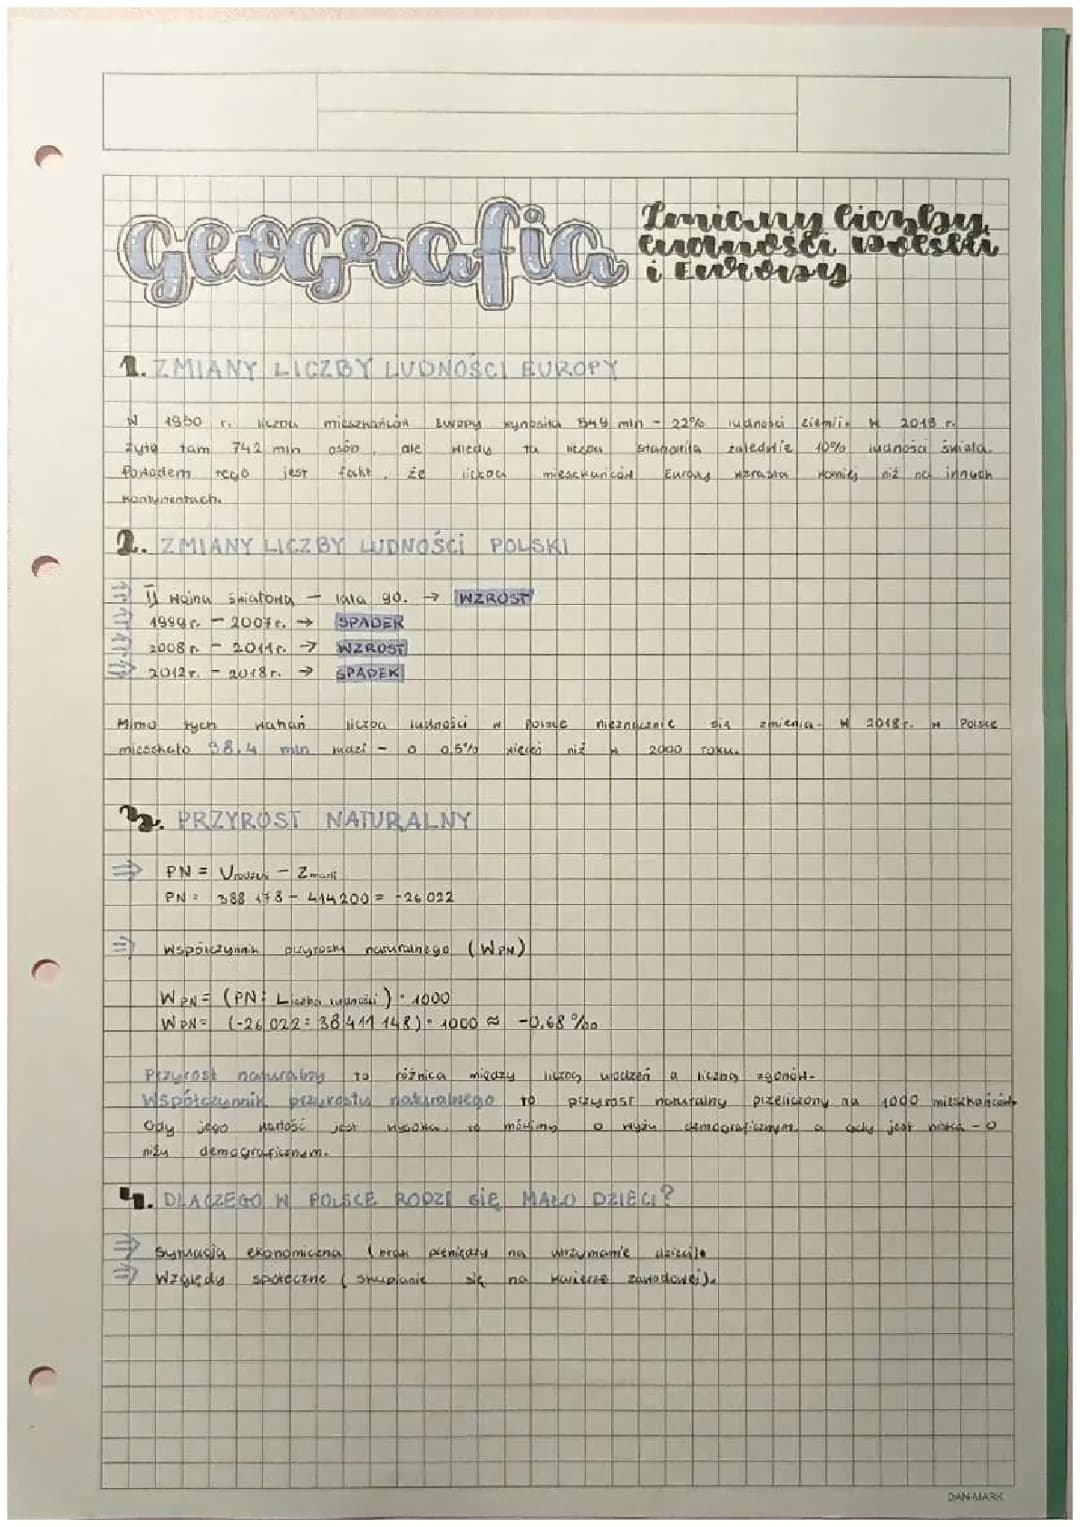 geografia
Zmiany liczby
ludności Polski
i Europy
1. ZMIANY LICZBY LUDNOŚCI EUROPY
W 1950 r. liczba mieszkańców Europy wynosiła 549 mln - 22% ludności ziemii. W 2018 r.
żyło tam 742 mln osób, ale wtedy ta liczba stanowiła zaledwie 10% ludności świata.
Powodem tego jest fakt, że liczba mieszkańców Europy wzrasta wolniej niż na innych
kontynentach.
2. ZMIANY LICZBY LUDNOŚCI POLSKI
⇒ II wojna światowa - lata 90. → WZROST
⇒ 1999 r. - 2007 r. → SPADEK
⇒ 2008 r. - 2011 r. → WZROST
⇒ 2012 r. - 2018 r. → SPADEK
Mimo tych wahań liczba ludności w Polsce nieznacznie się zmienia. W 2018 r. w Polsce
mieszkało 38.4 mln ludzi - o 0,5% więcej niż w 2000 roku.
3. PRZYROST NATURALNY
⇒ PN = Urodzeń - Zmarli
PN = 388 178 - 414 200 = -26 022
⇒ Współczynnik przyrostu naturalnego (WPN)
WPN = (PN : Liczba ludności) · 1000
WPN = (-26 022 : 38 411 148) · 1000 ≈ -0,68 ‰
Przyrost naturalny to różnica między liczbą urodzeń a liczbą zgonów.
Współczynnik przyrostu naturalnego to przyrost naturalny przeliczony na 1000 mieszkańców.
Gdy jego wartość jest wysoka, to mówimy o wyżu demograficznym, a gdy jest niska - o
niżu demograficznym.
4. DLACZEGO W POLSCE RODZI SIĘ MAŁO DZIECI?
⇒ Sytuacja ekonomiczna (brak pieniędzy na utrzymanie dzieci).
⇒ Względy społeczne (skupianie się na karierze zawodowej).
DAN-MARK